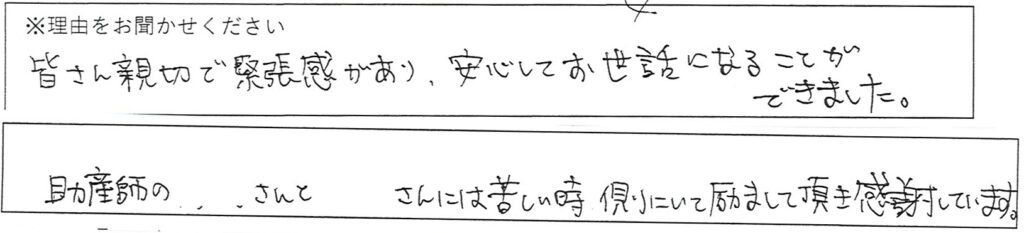 ※理由をお聞かせください
皆さん親切で緊張感があり、安心してお世話になることが
できました。
助産師の さんと さんには苦しい時側にいて励まして頂き感謝しています。